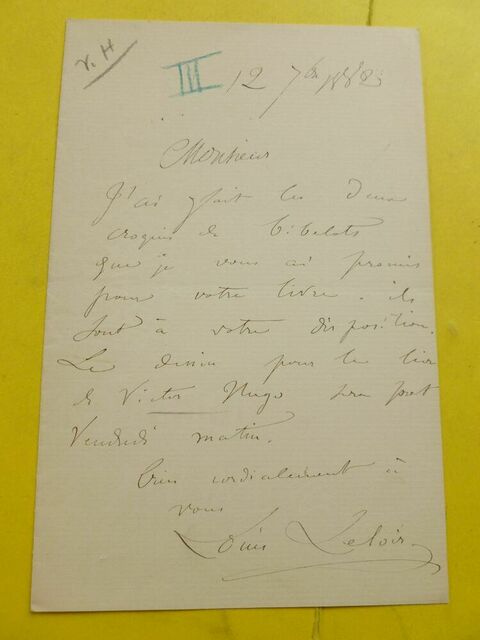 V. H
III 12 7bre 1882
Monsieur
J'ai fait les deux
croquis de bibelots
que je vous ai promis
pour votre livre. ils
sont à votre disposition.
Le dessin pour le livre
de Victor Hugo sera prêt
Vendredi matin.
bien cordialement à
vous
Louis Leloir